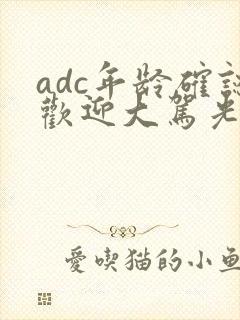 adc年龄確認
歡迎大駕光
愛喫猫的小魚